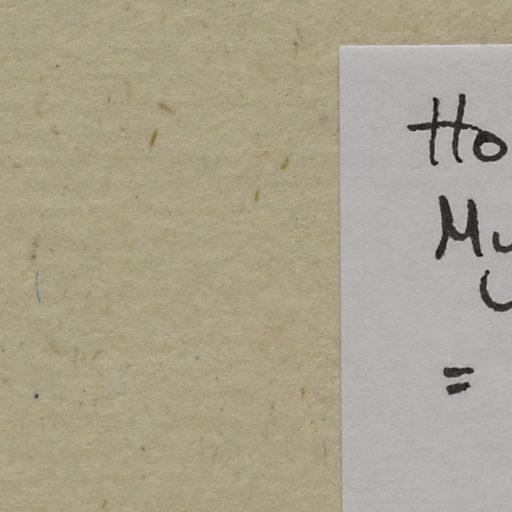 Ho
Mu
U
=